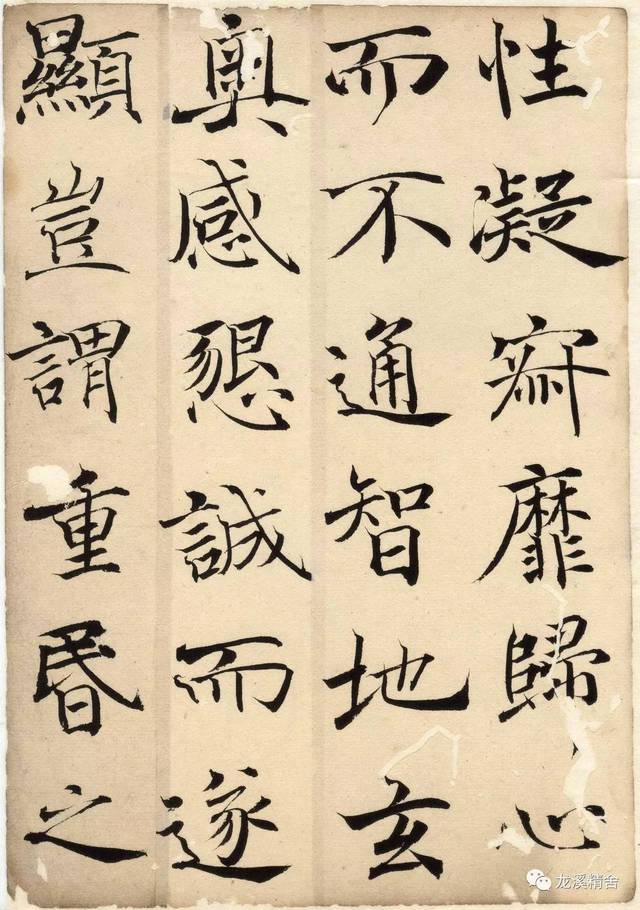 性凝寂靡歸心
而不通智地玄
奧感懇誠而遂
顯豈謂重昬之
龙溪精舍